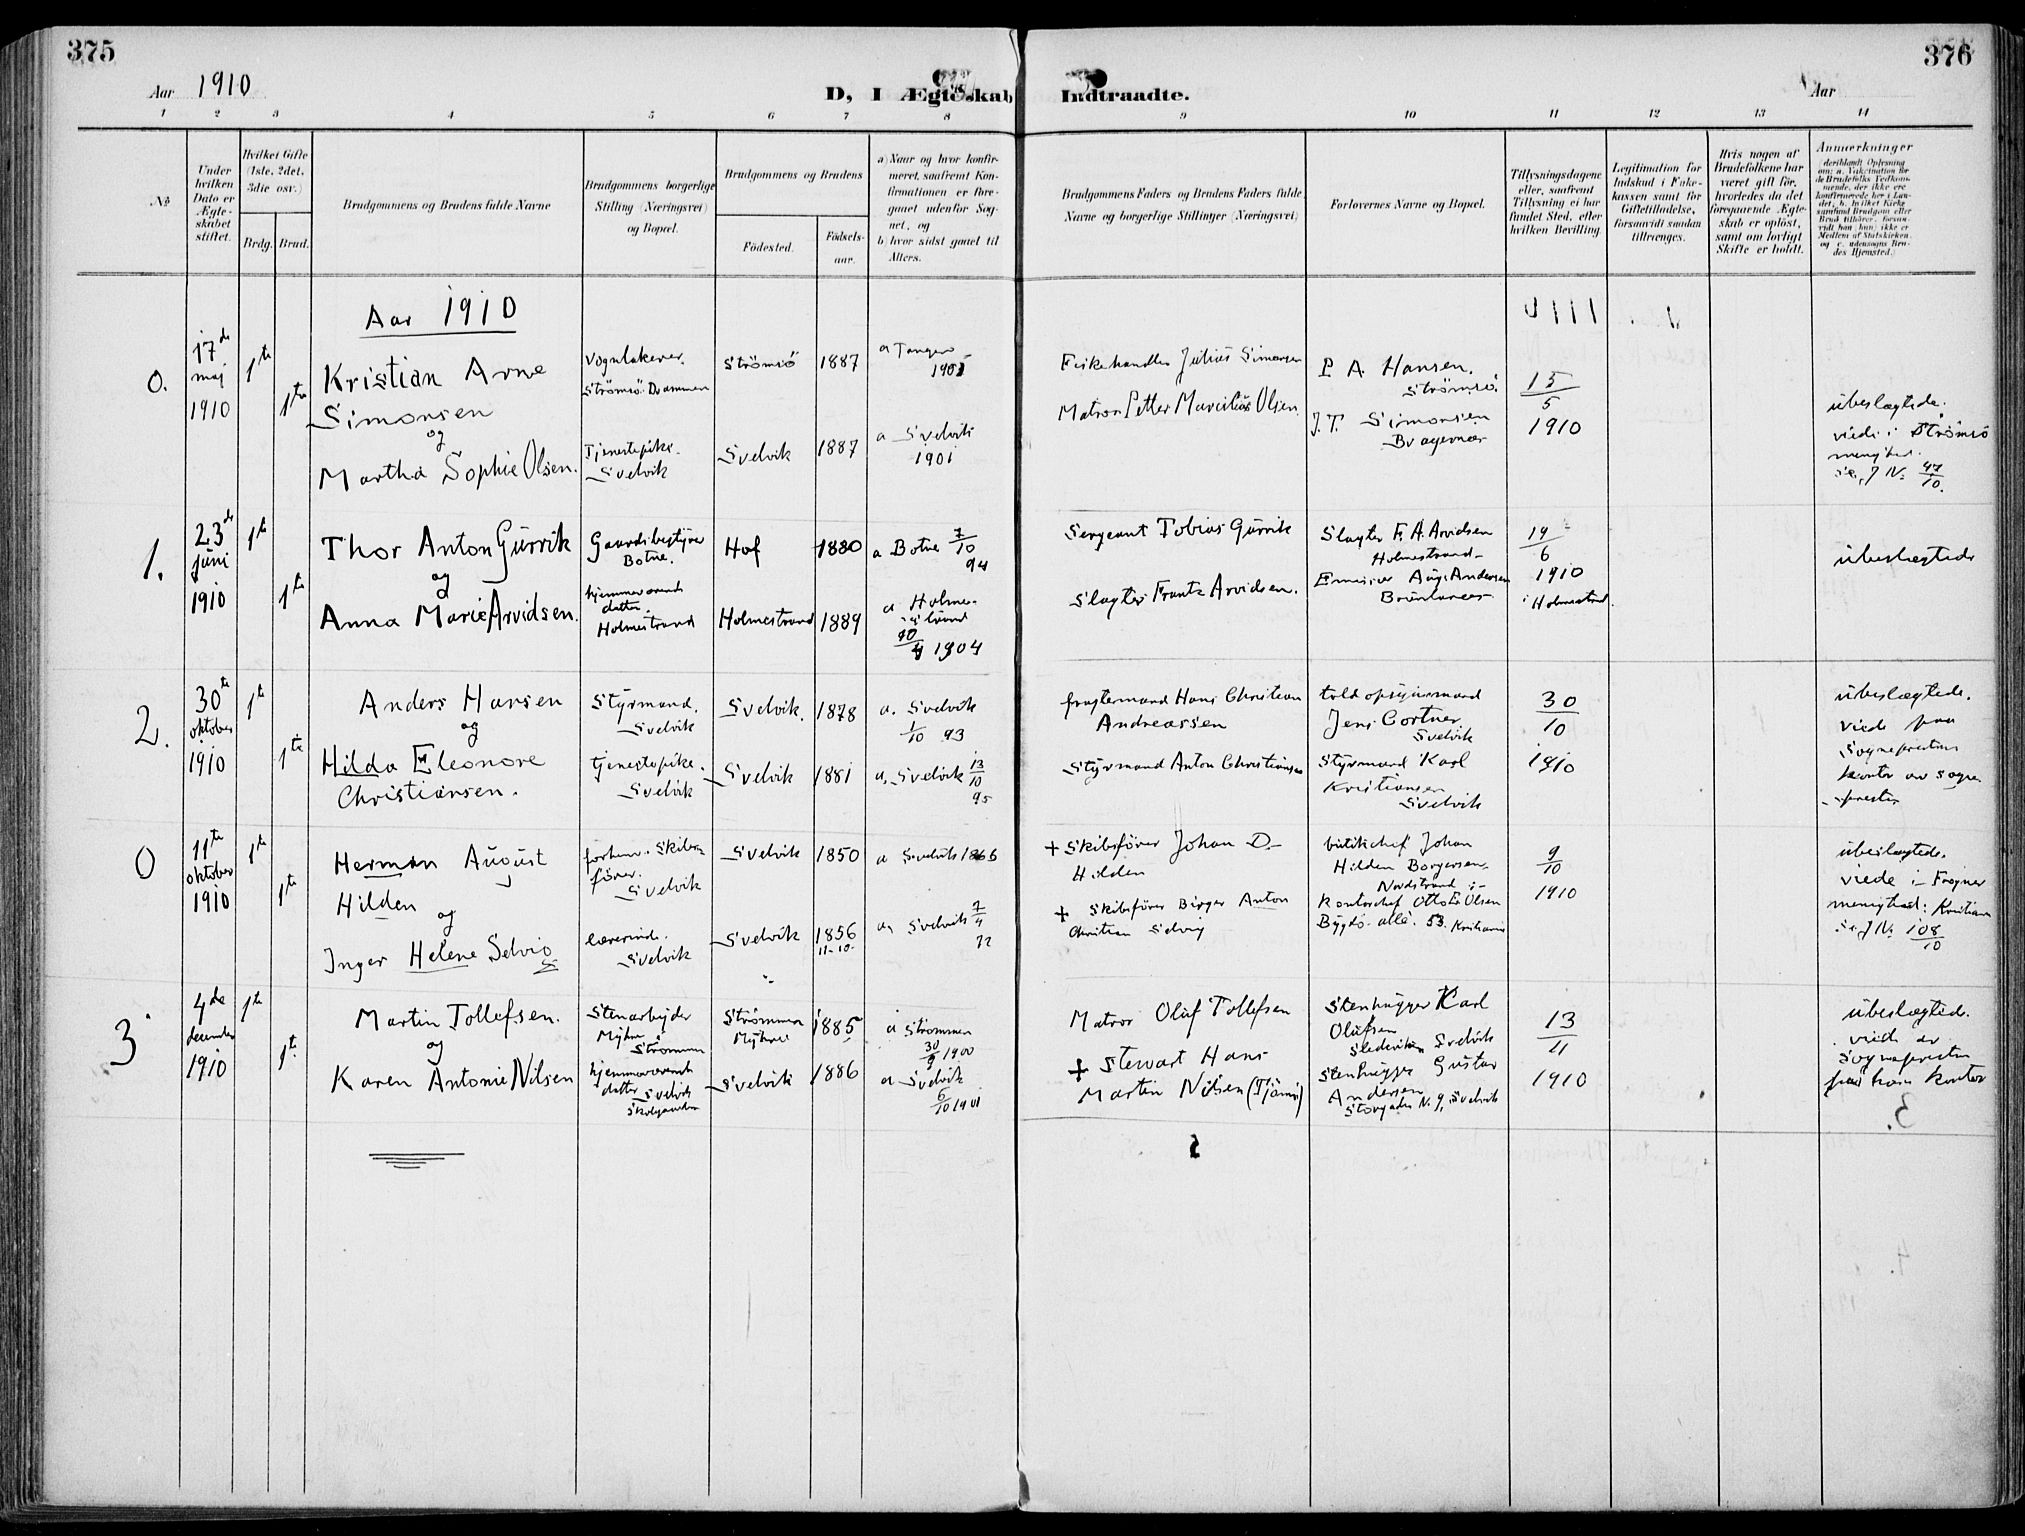 375
376
Aar 1910
D, I Ægteskab Indtraadte.
Aar
1 2 3 4 5 6 7 8 9 10 11 12 13 14
No
Under hvilken Dato er Ægteskabet stiftet.
Hvilket Gifte (1ste, 2det, 3die osv.)
Brdg. Brud.
Brudgommens og Brudens fulde Navne
Brudgommens borgerlige Stilling (Næringsvei) og Bopæl.
Brudgommens og Brudens
Fødested.
Fødsels-aar.
a) Naar og hvor konfir-
meret, saafremt Kon-
firmationen er fore-
gaaet udenfor Sog-
net, og
b) hvor sidst gaaet til
Alters.
Brudgommens Faders og Brudens Faders fulde
Navne og borgerlige Stillinger (Næringsvei)
Forlovernes Navne og Bopæl.
Tillysningsdagene
eller, saafremt
Tillysning ei har
fundet Sted, efter
hvilken Bevilling.
Legitimation for
Indskud i Enke-
kassen samt for
Giftetilladelse,
forsaavidt saadan
tiltrænges.
Hvis nogen af
Brudefolkene har
været gift før,
hvorledes da det
foregaaende Ægte-
skab er opløst,
samt om lovligt
Skifte er holdt.
Anmerkninger
Aar 1910
0.
17de maj 1910
1te
1te
Kristian Arne
Simonsen
og
Martha Sophie Olsen.
Vognlakerer.
Strömsö. Drammen
Tjenestepike.
Svelvik
Strömsö 1887
Svelvik 1887
a Tangen
a Svelvik
1901
Fiskehandler Julius Simonsen
Matros Petter Marcilius Olsen
P. A. Hansen.
Strömsö.
J. T. Simonsen
Bragernæs
15/5 1910
übeslægtede.
viede i Strömsö
menighed.
se J No 47/10.
1.
23de juni 1910
1te
1te
Thor Anton Gürrik
og
Anna Marie Arvidsen.
Gaardsbestyrer
Botne.
hjemmeværende
datter.
Holmestrand
Hof 1880
Holmestrand 1889
a Botne 7/10 94
a Holme-
strand
1904
Sergeant Tobias Gürrik
Slagter Frantz Arvidsen.
Slagter F. A. Arvidsen
Holmestrand
Aug. Andersen
19/6
1910
i Holmestrand.
übeslægtede
2.
30te oktober 1910
1te
1te
Anders Hansen
og
Hilda Eleonore
Christiansen.
Styrmand.
Svelvik
tjenestepike.
Svelvik
Svelvik. 1878
Svelvik 1881
a. Svelvik
1/10 93
a. Svelvik 13/10 95
fragtemand Hans Christian
Andreassen
Styrmand Anton Christiansen
toldopsynsmand
Jens Cortner
Svelvik
Styrmand Karl
Kristiansen
Svelvik
30/10
1910
übeslægtede.
viede paa
Sogneprestens
kontor av sogne-
presten
0
11te oktober 1910
1te
1te
Herman August
Hilden
og
Inger Helene Selvig
forhenv. Skibs-
förer.
Svelvik
lærerinde.
Svelvik
Svelvik 1850
Svelvik 1856
11-10-
a Svelvik 1866
a, Svelvik 7/4 72
+ Skibsförer Johan D.
Hilden
+ Skibsförer Birger Anton
Christian Selvig
bütikchef Johan
Hilden Borgersen
Nordstrand
Kontorchef Otto Olsen
Bygdö allé. 53. Kristiania
9/10
1910
übeslægtede.
viede i Frogner
menighed: Kristiania
se J No 108/10
3
4de december 1910
1te
1te
Martin Tollefsen.
og
Karen Antonie Nilsen
Stenarbejder
Myhre
Strömmen
hjemmeværende
datter Svelvik
Strömmen
Myhre 1885
Svelvik 1886
a Strömmen
30/9 1900
a Svelvik
6/10 1901
Matros Oluf Tollefsen
+ Stewart Hans
Martin Nilsen (Tjömö)
Stenhugger Karl
Olufsen
Svelvik
Stenhugger Gustav
Andersen
Storgaden N. 9, Svelvik
13/11
1910
übeslægtede.
viede av
Sognepresten
paa hans kontor